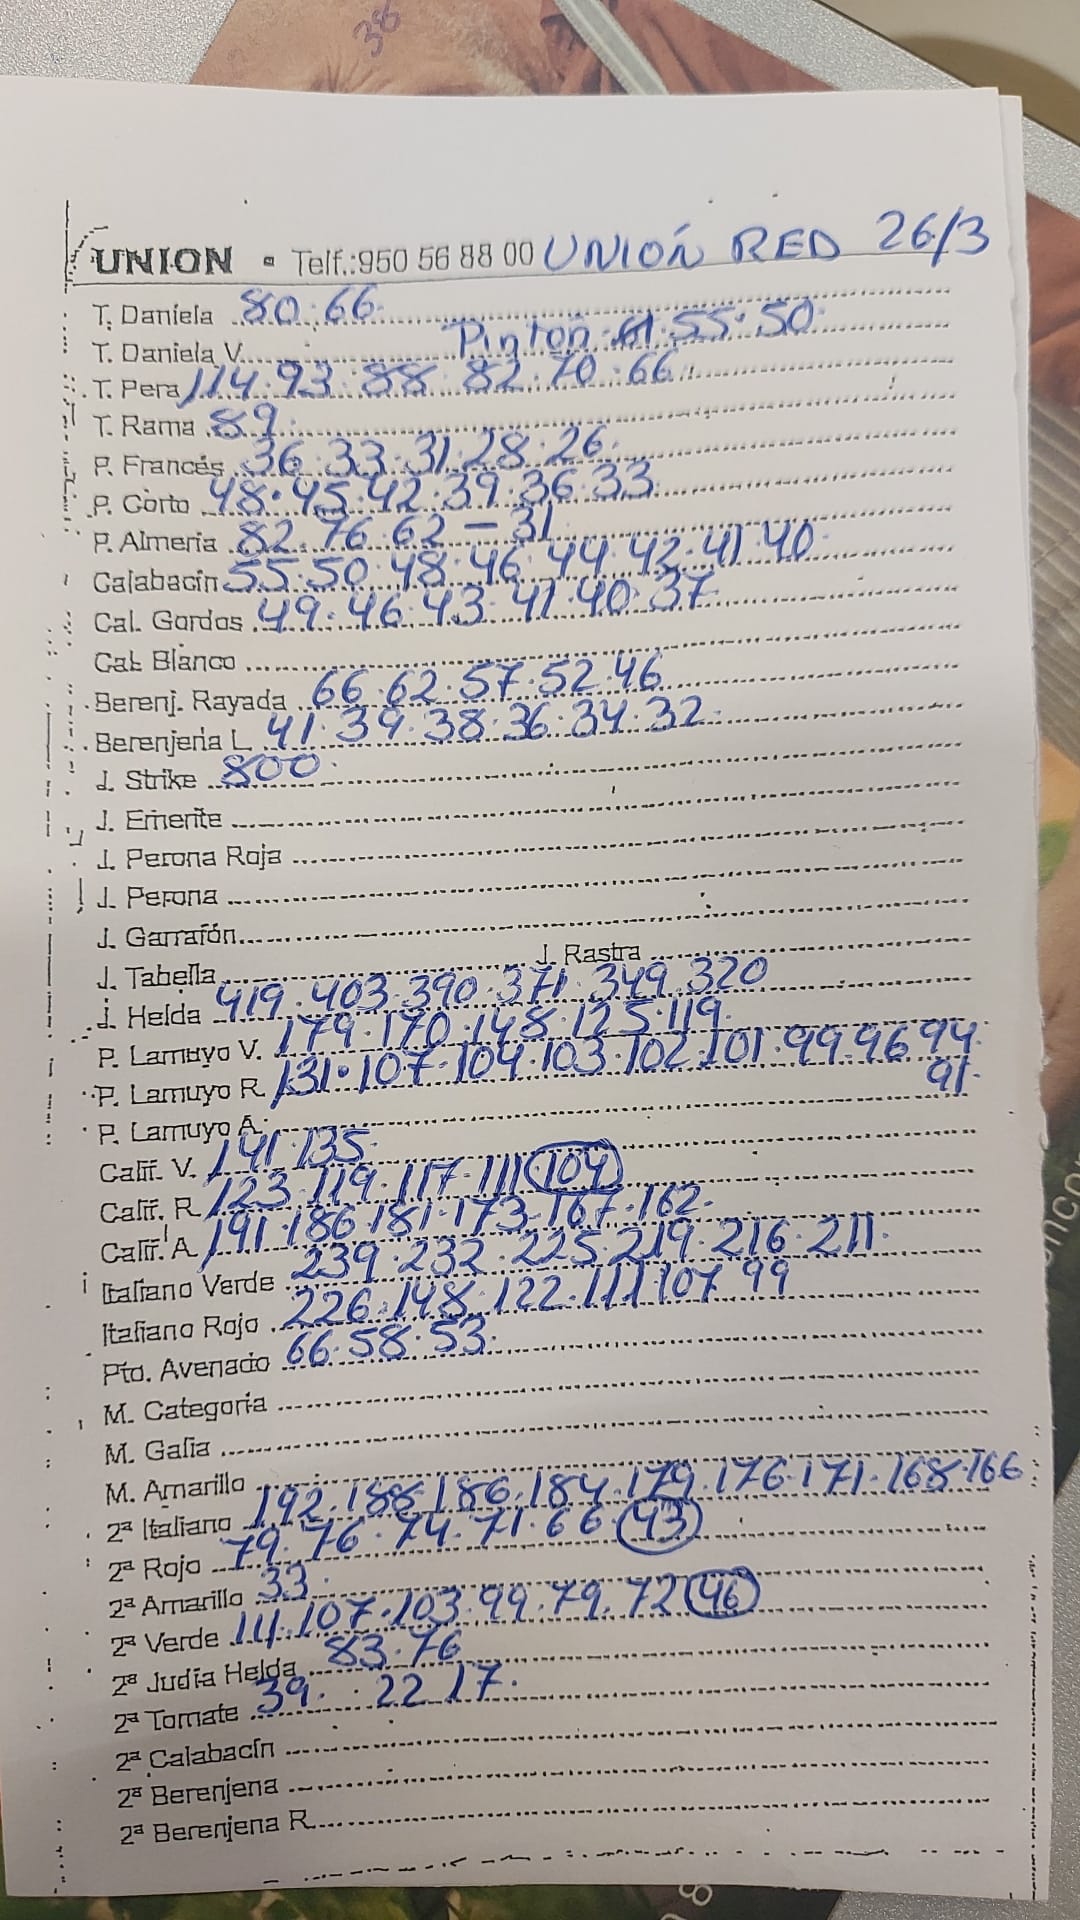 38
UNION - Telf.:950 56 88 00 UNIÓN RED 26/3
T. Daniela 80.66.
T. Daniela V. Pinton 61.55.50.
T. Pera 114.93.88.82.70.66.
T. Rama 89.
P. Francés 36.33.31.28.26.
P. Corto 48.45.42.39.36.33
P. Almeria 82.76.62 - 31
Calabacín 55.50.48.46.44.42.41.40.
Cal. Gordos 49.46.43.41.40.37
Cal. Blanco
Berenj. Rayada 66.62.57.52.46
Berenjena L. 41.39.38.36.34.32.
J. Strike 800.
J. Emerite
J. Perona Roja
J. Perona
J. Garrafón
J. Tabella J. Rastra
J. Helda 419.403.390.371.349.320
P. Lamuyo V. 179.170.148.125.119.
P. Lamuyo R. 131.107.104.103.102.101.99.96.94.
91.
P. Lamuyo A.
Calif. V. 141.135.
Calif. R. 123.119.117.111 104
Calif. A. 191.186.181.173.167.162.
Italiano Verde 239.232.225.219.216.211.
Italiano Rojo 226.148.122.111.107.99
Pto. Avenado 66.58.53.
M. Categoria
M. Galia
M. Amarillo
2ª Italiano 192.188.186.184.179.176.171.168.166
2ª Rojo 79.76.74.71.66 43
2ª Amarillo 33.
2ª Verde 111.107.103.99.79.72 46
2ª Judía Helda 83.76
2ª Tomate 39. . 22 17.
2ª Calabacín
2ª Berenjena
2ª Berenjena R.